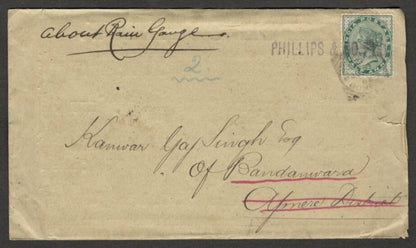 About Rain Gauge.
PHILLIPS &
2
Kanwar Gaj Singh Esq
Of Bandanwara
Ajmere District